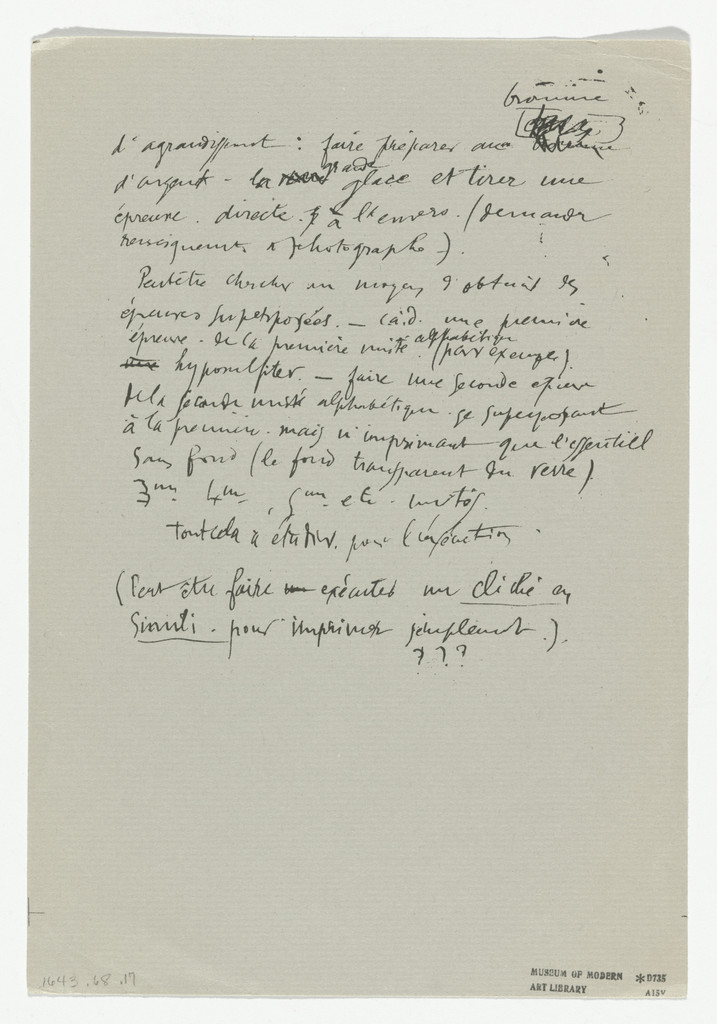 bromure
d'agrandissement : faire préparer au
d'argent - la grande glace et tirer une
épreuve . directe . à l'envers. (demander
renseignements à photographe -).
Peut être chercher un moyen d'obtenir des
épreuves superposées. — càd. une première
épreuve . de la première unité alphabétique (par exemple).
hyposulfiter. — faire une seconde épreuve
de la seconde unité alphabétique . se superposant
à la première . mais n'imprimant que l'essentiel
sans fond (le fond transparent du verre).
3me 4me , 5me etc - unités.
Tout cela à étudier . pour l'exécution .
(Peut être faire exécuter un cliché en
simili - pour imprimer simplement .).
? ? ?
1643.68.17
MUSEUM OF MODERN
ART LIBRARY
*D735
A15V